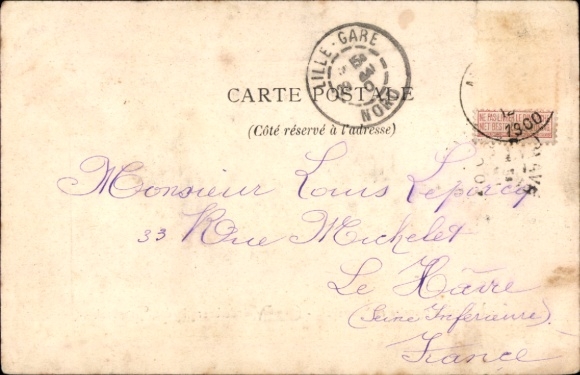 LILLE-GARE
NORD
CARTE POSTALE
(Côté réservé à l'adresse)
NE PAS LIVRER LE
NIET BESTELLEN
1900
Monsieur Louis Leporcq
33 Rue Michelet
Le Hâvre
(Seine Inférieure)
France